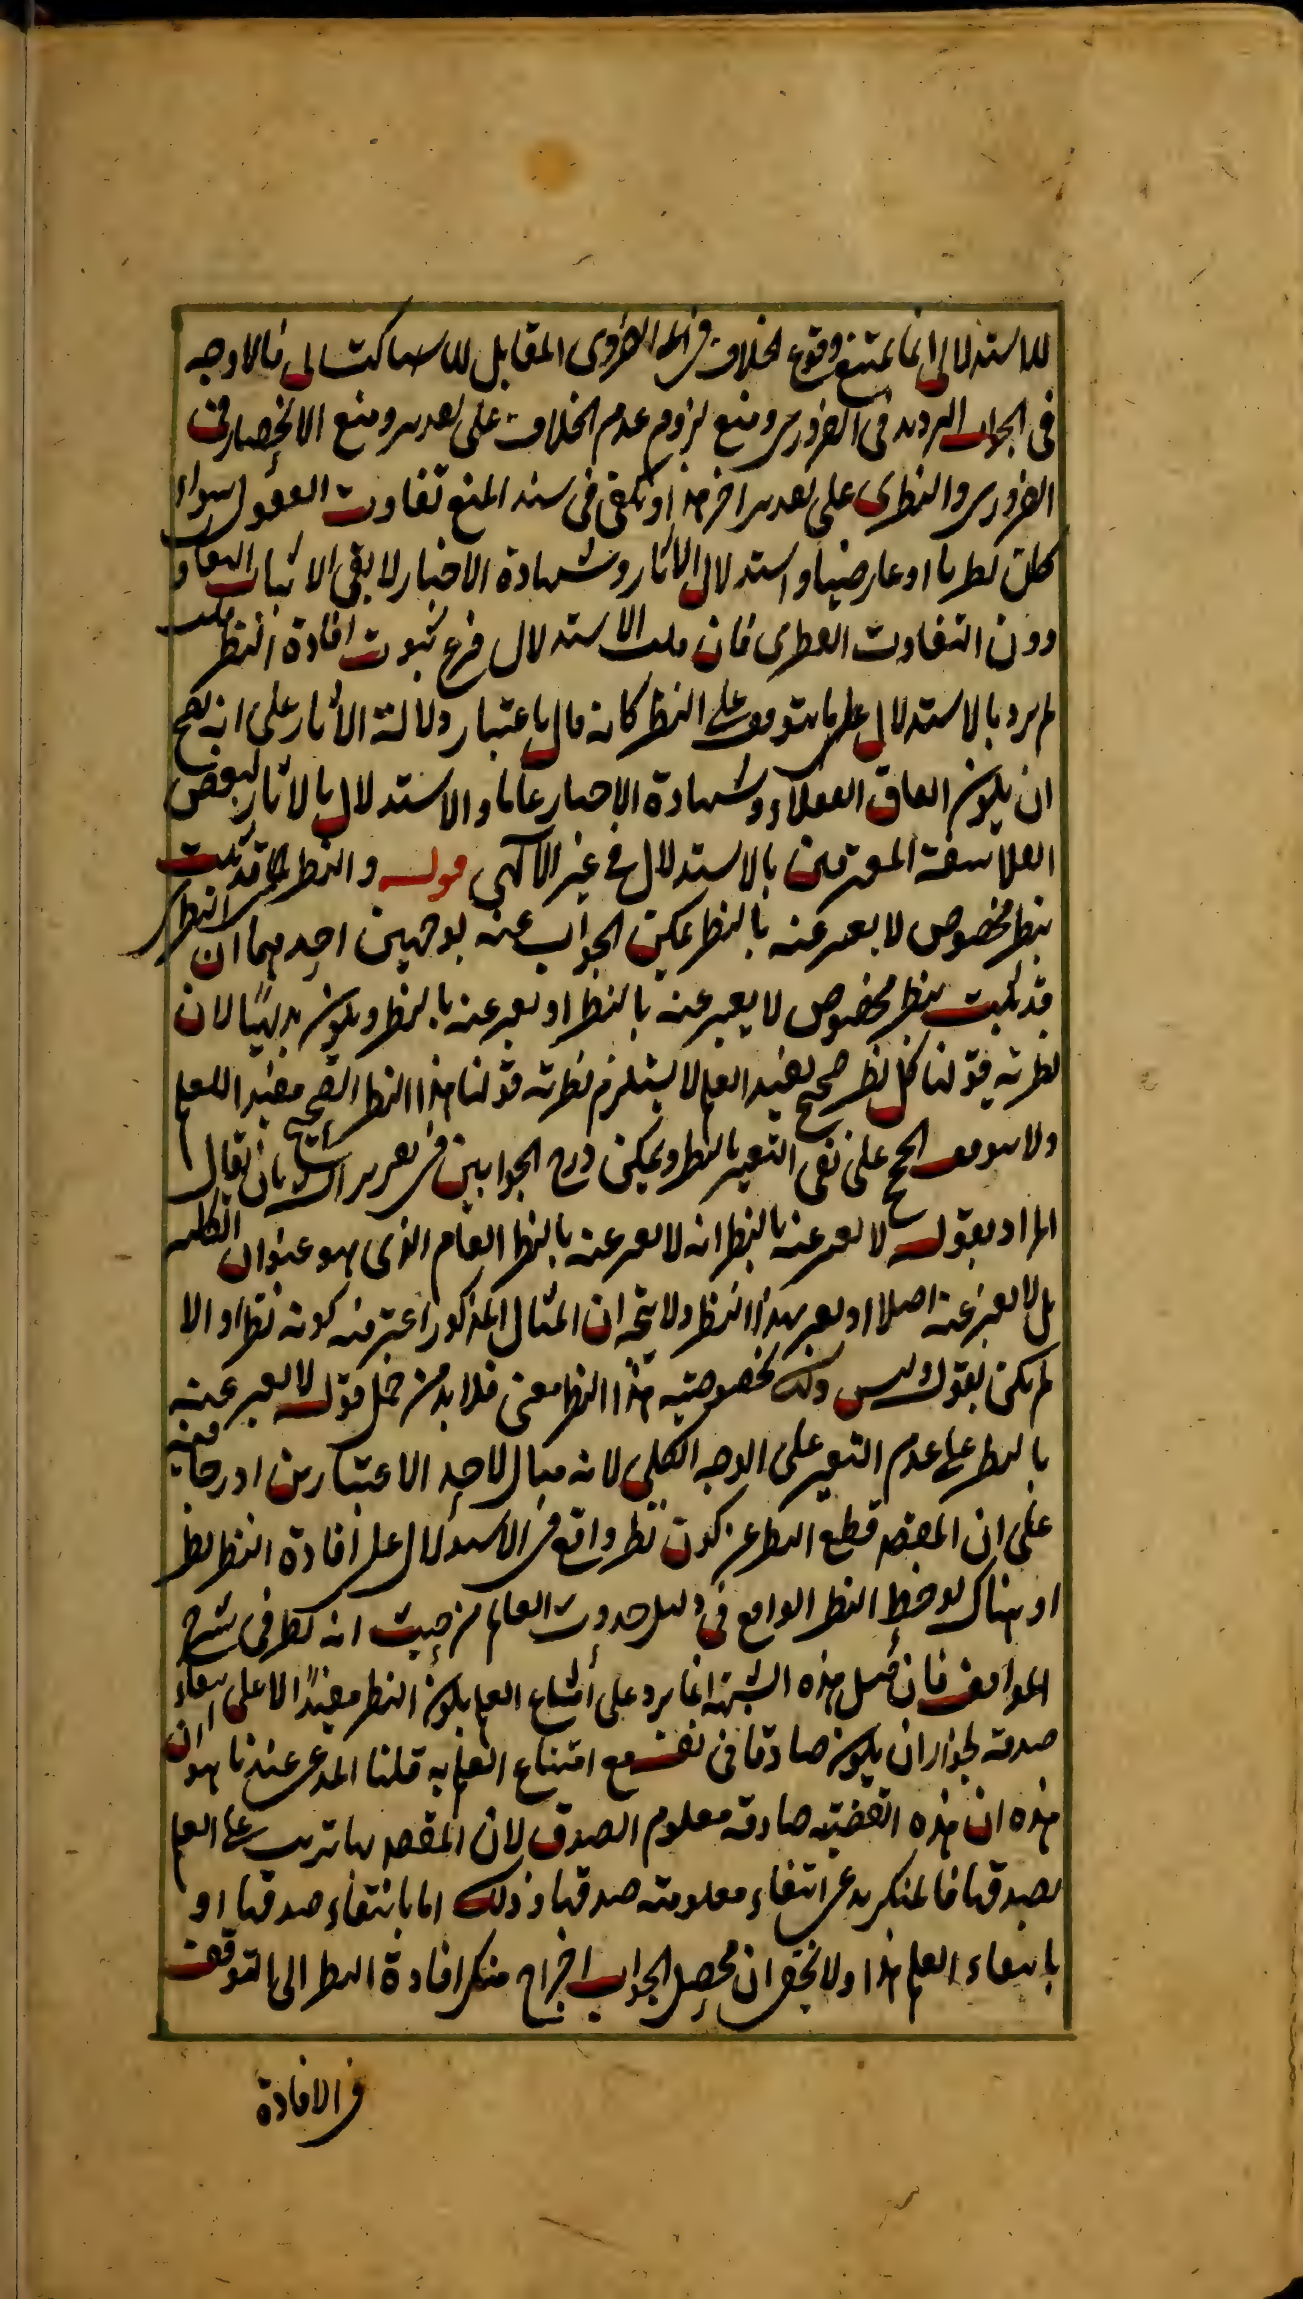 للاستدلالي انما يمتنع وقوع الخلاف في الضروري المقابل للاستدلالي فالاوجه
في الجواب الترديد في الضروري ومنع لزوم عدم الخلاف على تقدير ومنع الانحصار في
الضروري والنظري على تقدير اخر هذا ويكفي في سند المنع تفاوت العقول سواء
كان فطريا او عارضيا واستدلال الاثار وشهادة الاخبار لا يقي الاثبات التفاوت
دون التفاوت الفطري فان قلت الاستدلال فرع ثبوت افادة النظر قلت
لم يرد بالاستدلال على ما يتوقف على النظر كانه قال باعتبار دلالة الاثار على انه يصح
ان يكون اتفاق العقلاء وشهادة الاخبار عاما والاستدلال بالاثار لبعض
الفلاسفة المعترفين بالاستدلال في غير الالهي قوله والنظر قد يثبت
بنظر مخصوص لا يعبر عنه بالنظر يمكن الجواب عنه بوجهين احدهما ان النظر
قد يثبت بنظر مخصوص لا يعبر عنه بالنظر او يعبر عنه بالنظر ويكون بديهيا لان
نظرية قولنا كل نظر صحيح يفيد العلم لا يستلزم نظرية قولنا هذا النظر الصحيح مفيد للعلم
ولا يتوقف على نفي التعبير بالنظر ويمكن درج الجوابين في تقرير الشارح بان يقال
المراد بقوله لا يعبر عنه بالنظر انه لا يعبر عنه بالنظر العام الذي هو عنوان الكلية
بل لا يعبر عنه اصلا او يعبر بهذا النظر ولا يتجه ان المثال المذكور اعتبر فيه كونه نظرا والا
لم يكن لقوله وليس ذلك لخصوصية هذا النظر معنى فلا بد من حمل قوله لا يعبر عنه
بالنظر على عدم التعبير على الوجه الكلي لانه مثال لاحد الاعتبارين ادرجا فيه
على ان المقصد قطع النظر عن كون نظر واقع في الاستدلال على افادة النظر نظرا
او هناك لوحظ النظر الواقع في دليل حدوث العالم من حيث انه نظر في شرح
المواقف فان قيل هذه الشبهة انما يرد على امتناع العلم بكون النظر مفيدا لا على انتفاء
صدقه لجواز ان يكون صادقا في نفسه مع امتناع العلم به قلنا المدعى عندنا هو ان
هذه ان هذه القضية صادقة معلوم الصدق لان المقصد بها ترتب على العلم
بصدقها فالمنكر يدعي انتفاء معلومية صدقها وذلك اما بانتفاء صدقها او
بانتفاء العلم هذا ولا يخفى ان محصل الجواب اخراج منكر افادة النظر الى التوقف
في الافادة